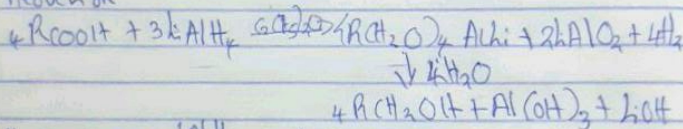 4RCOOH + 3LiAlH4 (RCH2O)4 AlLi + 2LiAlO2 + 4H2
↓ 4H2O
4RCH2OH + Al(OH)3 + LiOH